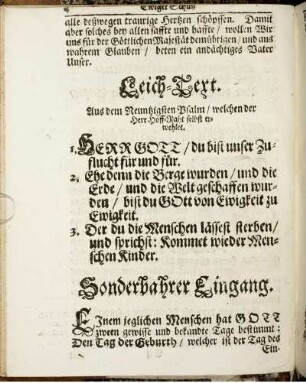 Ewiger Schutz
alle deßwegen traurige Hertzen schöpffen. Damit
aber solches bey allen haffte und baffte/ wollen Wir
uns für der Göttlichen Majestät demüthigen/ und aus
wahrem Glauben / beten ein andächtiges Vater
Unser.
Leich-Text.
Aus dem Neuntzigsten Psalm/ welchen der
Herr Hoff-Raht selbst er-
wehlet.
1. HERR GOTT/ du bist unser Zu-
flucht für und für.
2. Ehe denn die Berge wurden/ und die
Erde/ und die Welt geschaffen wur-
den/ bist du GOtt von Ewigkeit zu
Ewigkeit.
3. Der du die Menschen lässest sterben/
und sprichst: Kommet wieder Men-
schen Kinder.
Sonderbahrer Eingang.
EInem jeglichen Menschen hat GOTT
zween gewisse und bekandte Tage bestimmt:
Den Tag der Geburth/ welcher ist der Tag des
Ein-